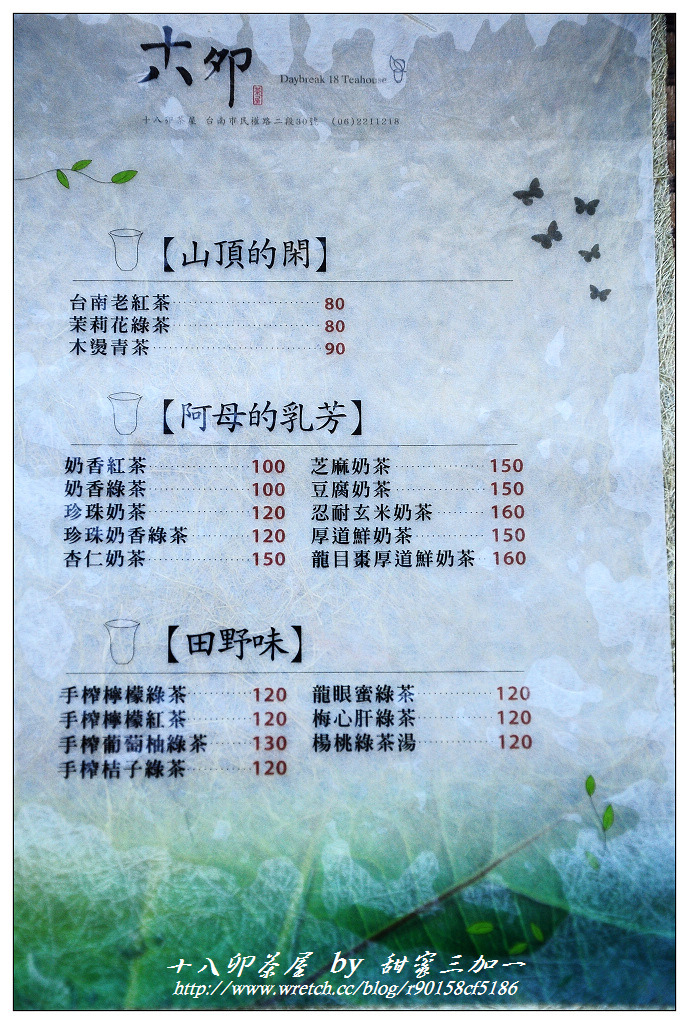 十八卯
Daybreak 18 Teahouse
十八卯茶屋 台南市民權路二段30號 (06)2211218
【山頂的閑】
台南老紅茶 80
茉莉花綠茶 80
木燙青茶 90
【阿母的乳芳】
奶香紅茶 100
奶香綠茶 100
珍珠奶茶 120
珍珠奶香綠茶 120
杏仁奶茶 150
芝麻奶茶 150
豆腐奶茶 150
忍耐玄米奶茶 160
厚道鮮奶茶 150
龍目棗厚道鮮奶茶 160
【田野味】
手榨檸檬綠茶 120
手榨檸檬紅茶 120
手榨葡萄柚綠茶 130
手榨桔子綠茶 120
龍眼蜜綠茶 120
梅心肝綠茶 120
楊桃綠茶湯 120
十八卯茶屋 by 甜蜜三加一
http://www.wretch.cc/blog/r90158cf5186